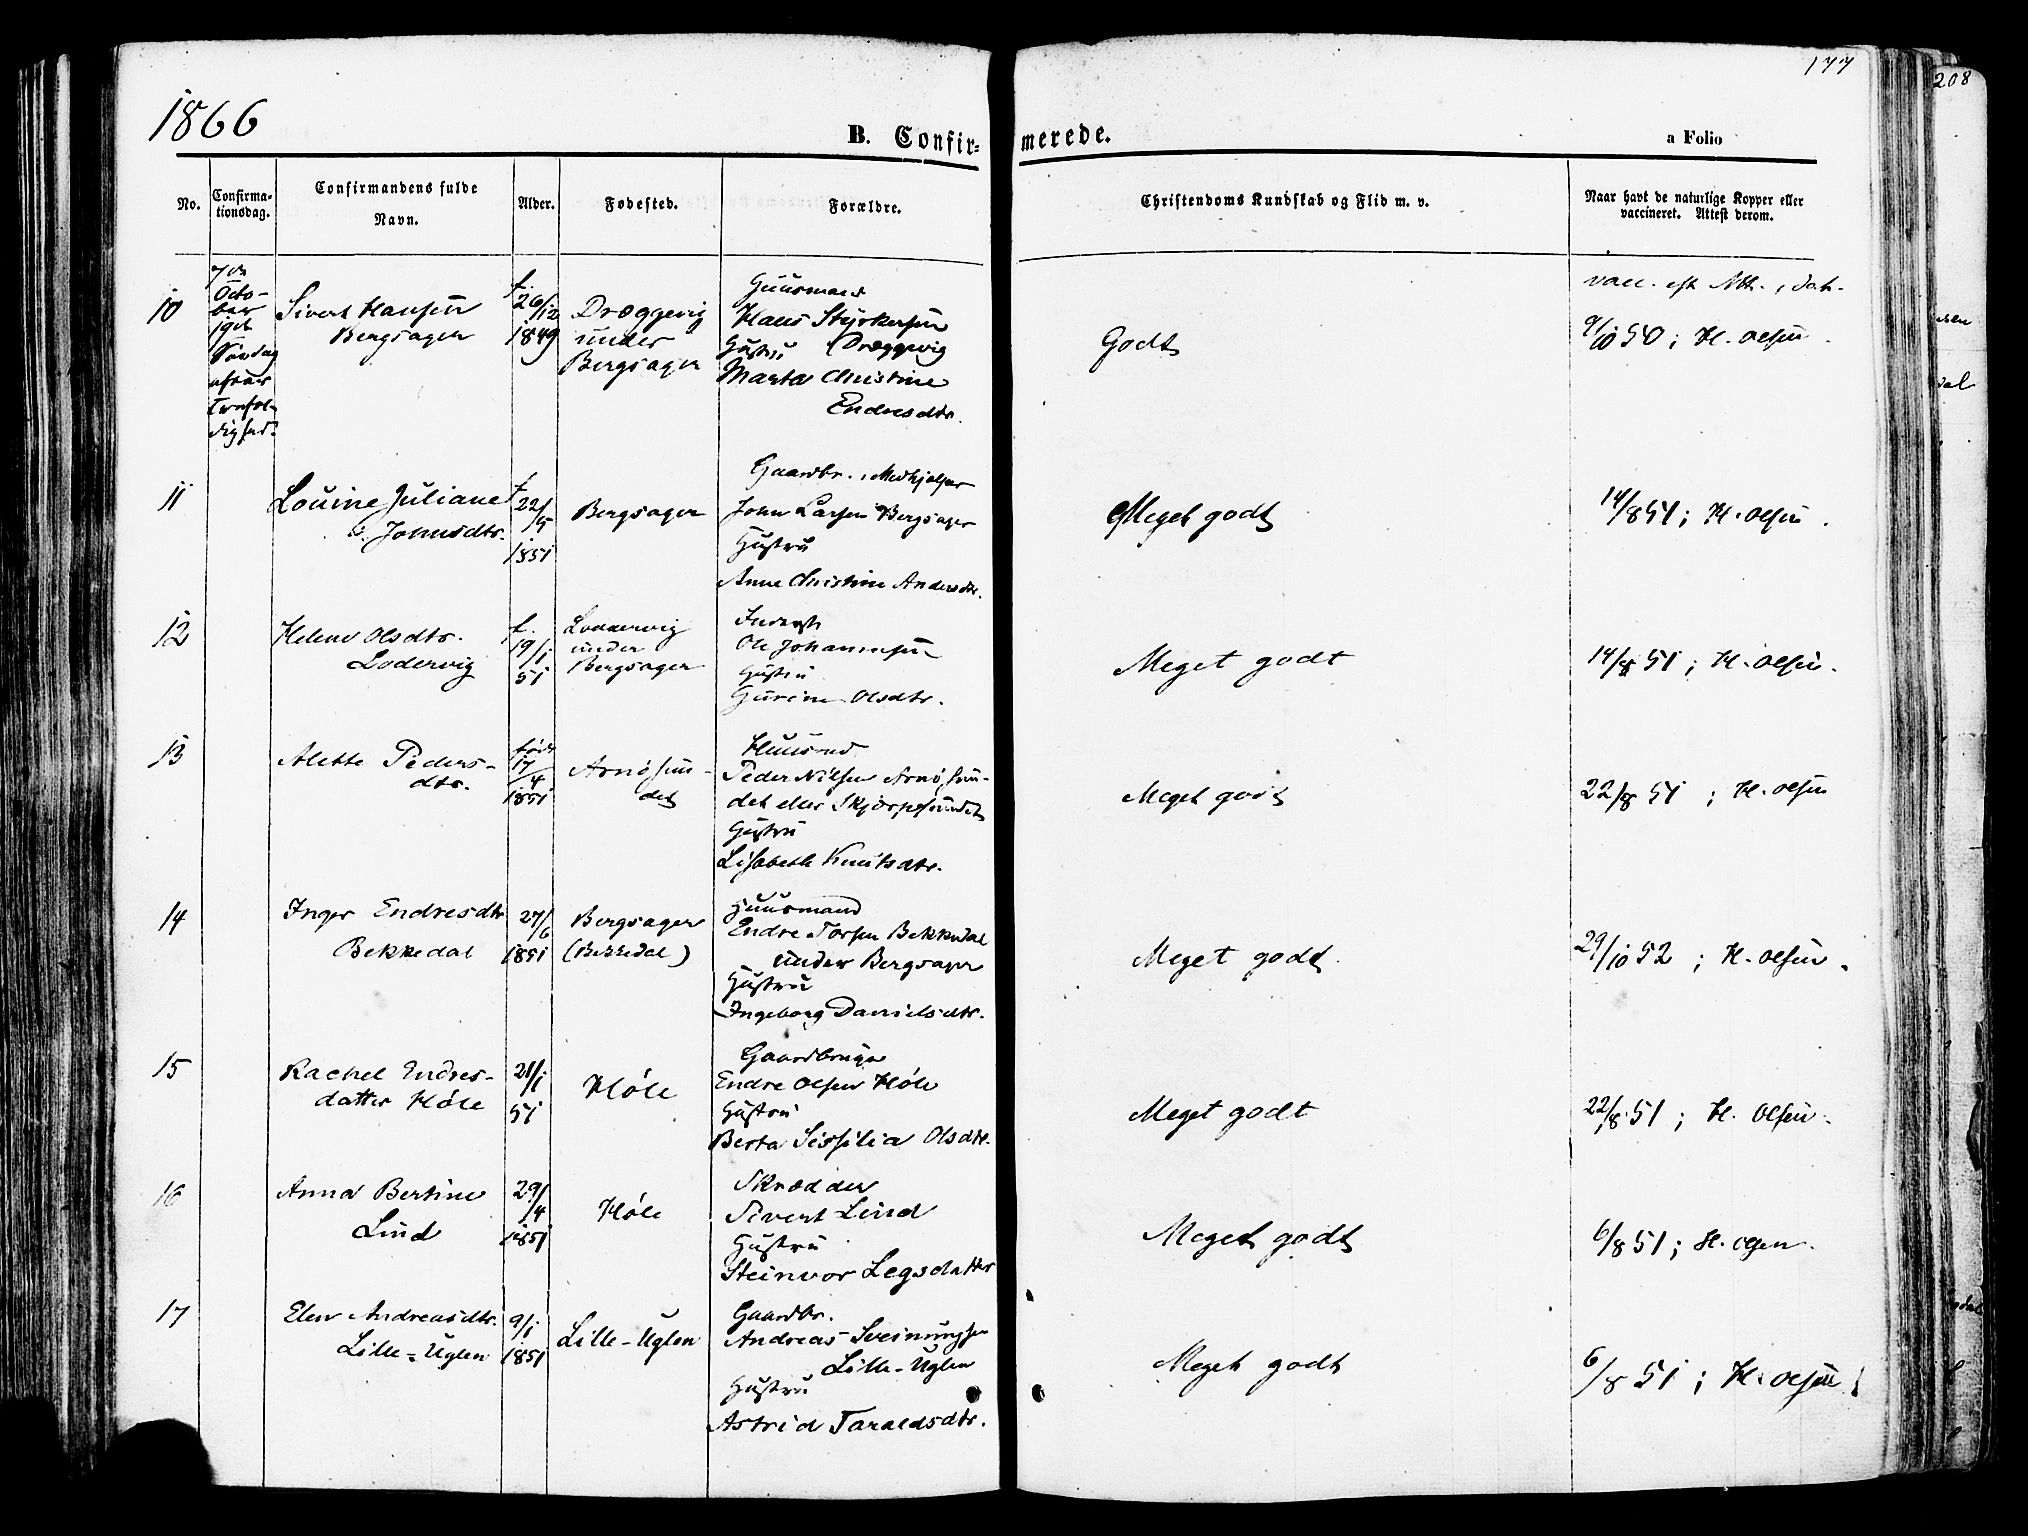 177
208
1866
B. Confir-
merede.
a Folio
No.
Confirma-
tionsdag.
Confirmandens fulde
Navn.
Alder.
Fødested.
Forældre.
Christendoms Kundskab og Flid m. v.
Naar havt de naturlige Kopper eller
vaccineret. Attest derom.
10
7de
Octo-
ber
19de
Søndag
efter
Trefol-
dighed.
Sivert Hansen
Bergsagen
f.
26/12
1849
Dræggevig
under
Bergsagen
Huusmand
Hans Styrkersen
Dræggevig
Hustru
Marta Christine
Endresdtr.
Godt
vacc. eft Att. , dat.
9/10 50 ; H. Olsen
11
Louine Juliane
Johnsdtr.
f.
22/5
1851
Bergsagen
Gaardbr. , Medhjelper
John Larsen Bergsagen
Hustru
Anne Christine Andersdtr.
Meget godt
14/8 51 ; H. Olsen .
12
Helene Olsdtr.
Lodervig
f.
19/1
51
Lodervig
under
Bergsagen
Inderst
Ole Johannesen
Hustru
Gurine Olsdtr.
Meget godt
14/8 51 ; H. Olsen .
13
Alette Peders-
dtr.
født
17/4
1851
Arnøsun-
det
Huusmd
Peder Nilsen Arnøsun-
det eller Skjørpesundet
Hustru
Lisabeth Knutsdtr.
Meget godt
22/8 51 ; H. Olsen
14
Inger Endresdtr
Bekkedal
27/6
1851
Bergsagen
(Bekkedal)
Huusmand
Endre Torsen Bekkedal
under Bergsagen
Hustru
Ingeborg Danielsdtr.
Meget godt
29/10 52 ; H. Olsen .
15
Rachel Endres-
datter Høle
21/1
51
Høle
Gaardbruger
Endre Olsen Høle
Hustru
Berta Sissilia Olsdtr.
Meget godt
22/8 51 ; H. Olsen .
16
Anna Bertine
Lind
29/4
1851
Høle
Skrædder
Sivert Lind
Hustru
Steinvor Legsdatter
Meget godt
6/8 51 ; H. Olsen .
17
Elen Andreasdtr.
Lille-Uglen
9/1
1851
Lille-Uglen
Gaardbr.
Andreas Sveinungsen
Lille-Uglen
Hustru
Astrid Taraldsdtr.
Meget godt
6/8 51 ; H. Olsen